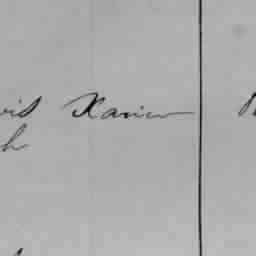 vis Xavier
h